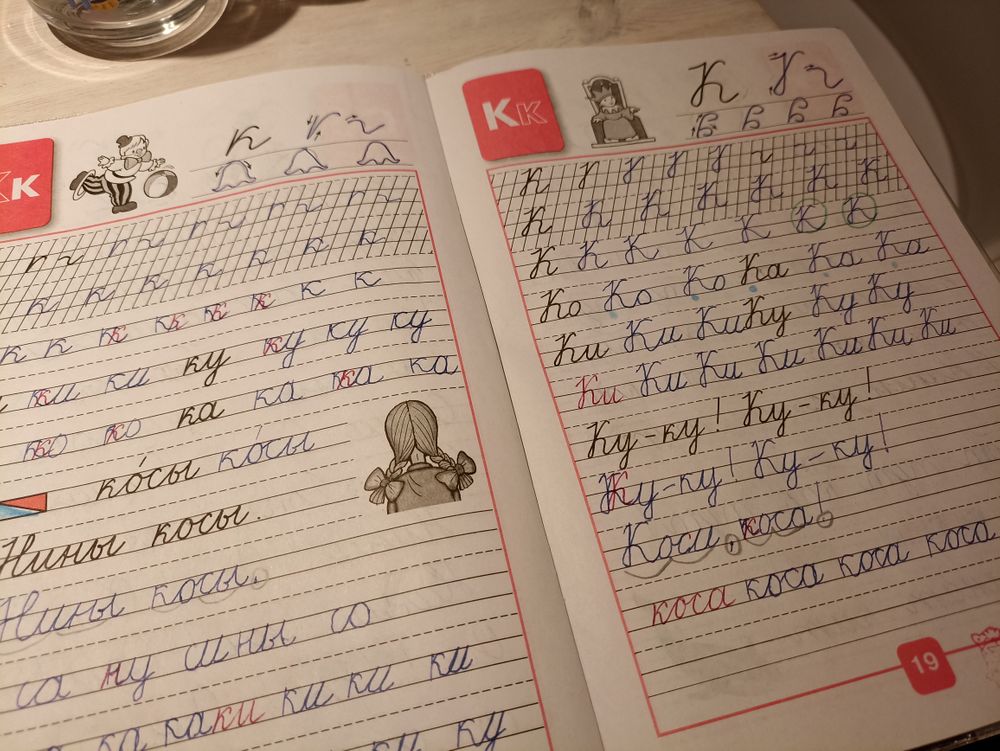 Кк
к
к к к к к к к
к к к к к к к
ки ки ку ку ку ку
ко ко ка ка ка ка
ко́сы ко́сы
Нины косы.
Нины косы.
са ну си ны со
ка каки ки ки ки
ки ку
Кк
К
К
К К К К К К К
К К К К К К К
Ко Ко Ко Ка Ка Ка
Ки Ки Ки Ку Ку Ку
Ки Ки Ки Ки Ки Ки Ки
Ку-ку! Ку-ку!
Ку-ку! Ку-ку!
Коси, коса!
коса коса коса коса
19